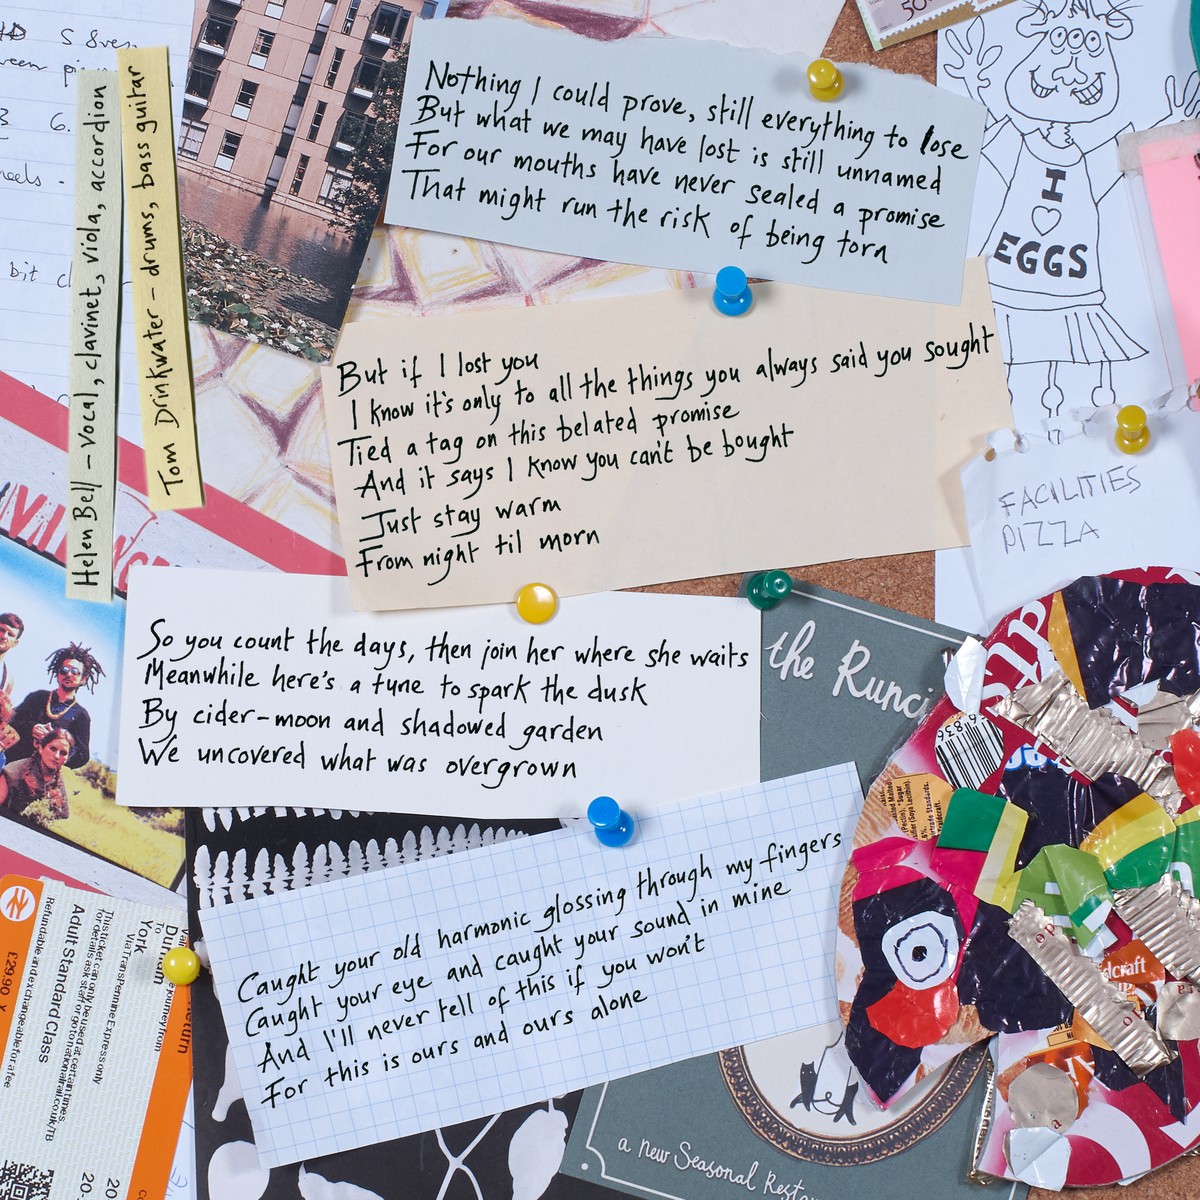 Nothing I could prove, still everything to lose
But what we may have lost is still unnamed
For our mouths have never sealed a promise
That might run the risk of being torn
But if I lost you
I know it's only to all the things you always said you sought
Tied a tag on this belated promise
And it says I know you can't be bought
Just stay warm
From night til morn
So you count the days, then join her where she waits
Meanwhile here's a tune to spark the dusk
By cider-moon and shadowed garden
We uncovered what was overgrown
Caught your old harmonic glossing through my fingers
Caught your eye and caught your sound in mine
And I'll never tell of this if you won't
For this is ours and ours alone
Helen Bell – vocal, clavinet, viola, accordion
Tom Drinkwater – drums, bass guitar
I
EGGS
FACILITIES
PIZZA
the Runci
a new Seasonal
50
6.
bit
York
Via TransPennine Express only
This ticket can only be used at certain times,
for details ask staff or go to nationalrail.co.uk/TB
Adult Standard Class
Refundable and exchangeable for a fee
£29.90